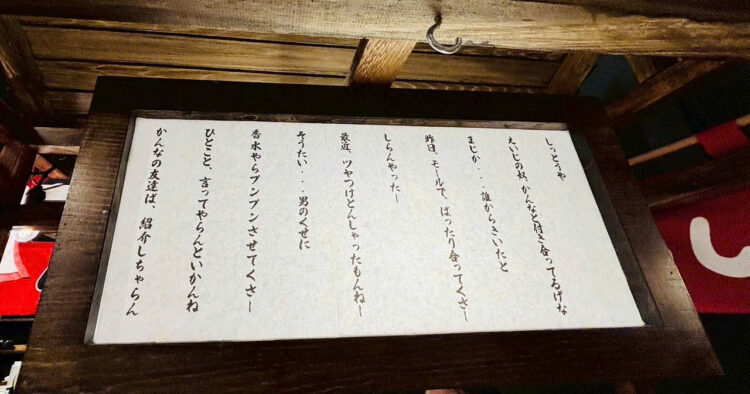 しっとうや
えいじの奴、かんなと付き合ってるげな
まじか・・・誰からきいたと
昨日、モールで、ばったり会ってくさー
しらんやったー
最近、ツヤつけとんしゃったもんねー
そうたい・・・男のくせに
香水やらプンプンさせてくさー
ひとこと、言ってやらんといかんね
かんなの友達は、紹介しちゃらん
し